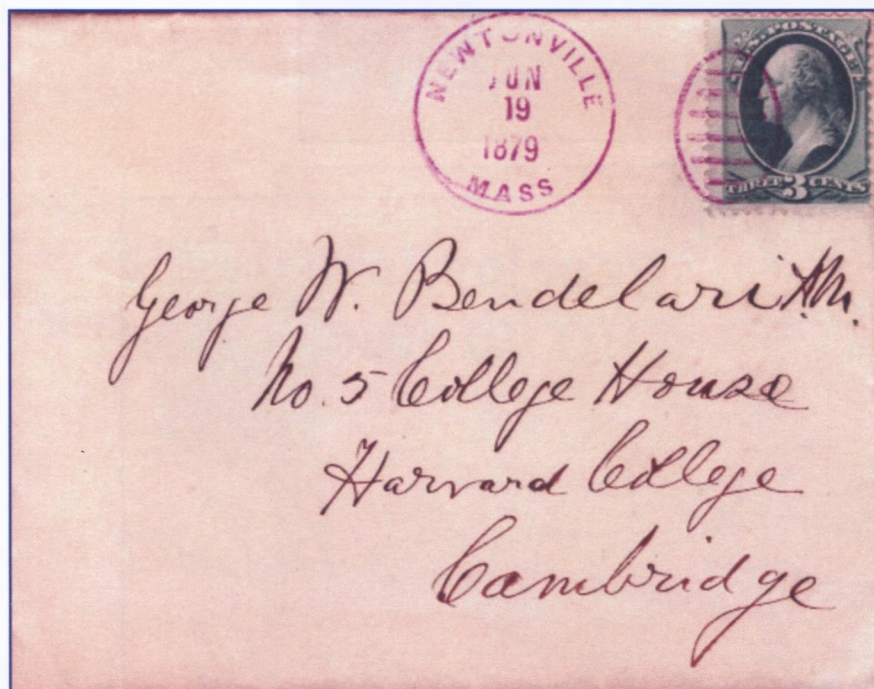 NEWTONVILLE
JUN
19
1879
MASS
U.S. POSTAGE
THREE 3 CENTS
George W. Bendelari A.M.
No. 5 College House
Harvard College
Cambridge